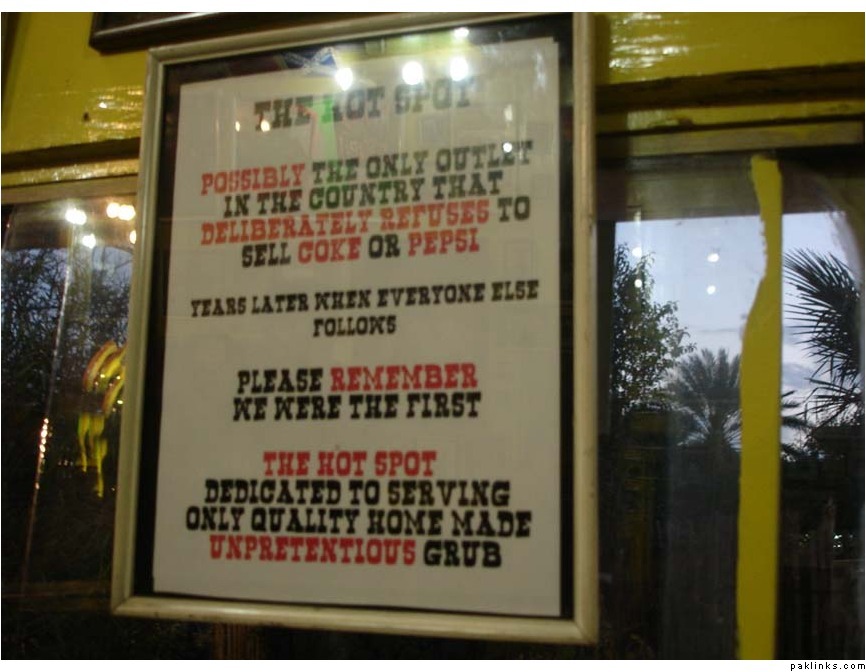 THE HOT SPOT
POSSIBLY THE ONLY OUTLET
IN THE COUNTRY THAT
DELIBERATELY REFUSES TO
SELL COKE OR PEPSI
YEARS LATER WHEN EVERYONE ELSE
FOLLOWS
PLEASE REMEMBER
WE WERE THE FIRST
THE HOT SPOT
DEDICATED TO SERVING
ONLY QUALITY HOME MADE
UNPRETENTIOUS GRUB
paklinks.com